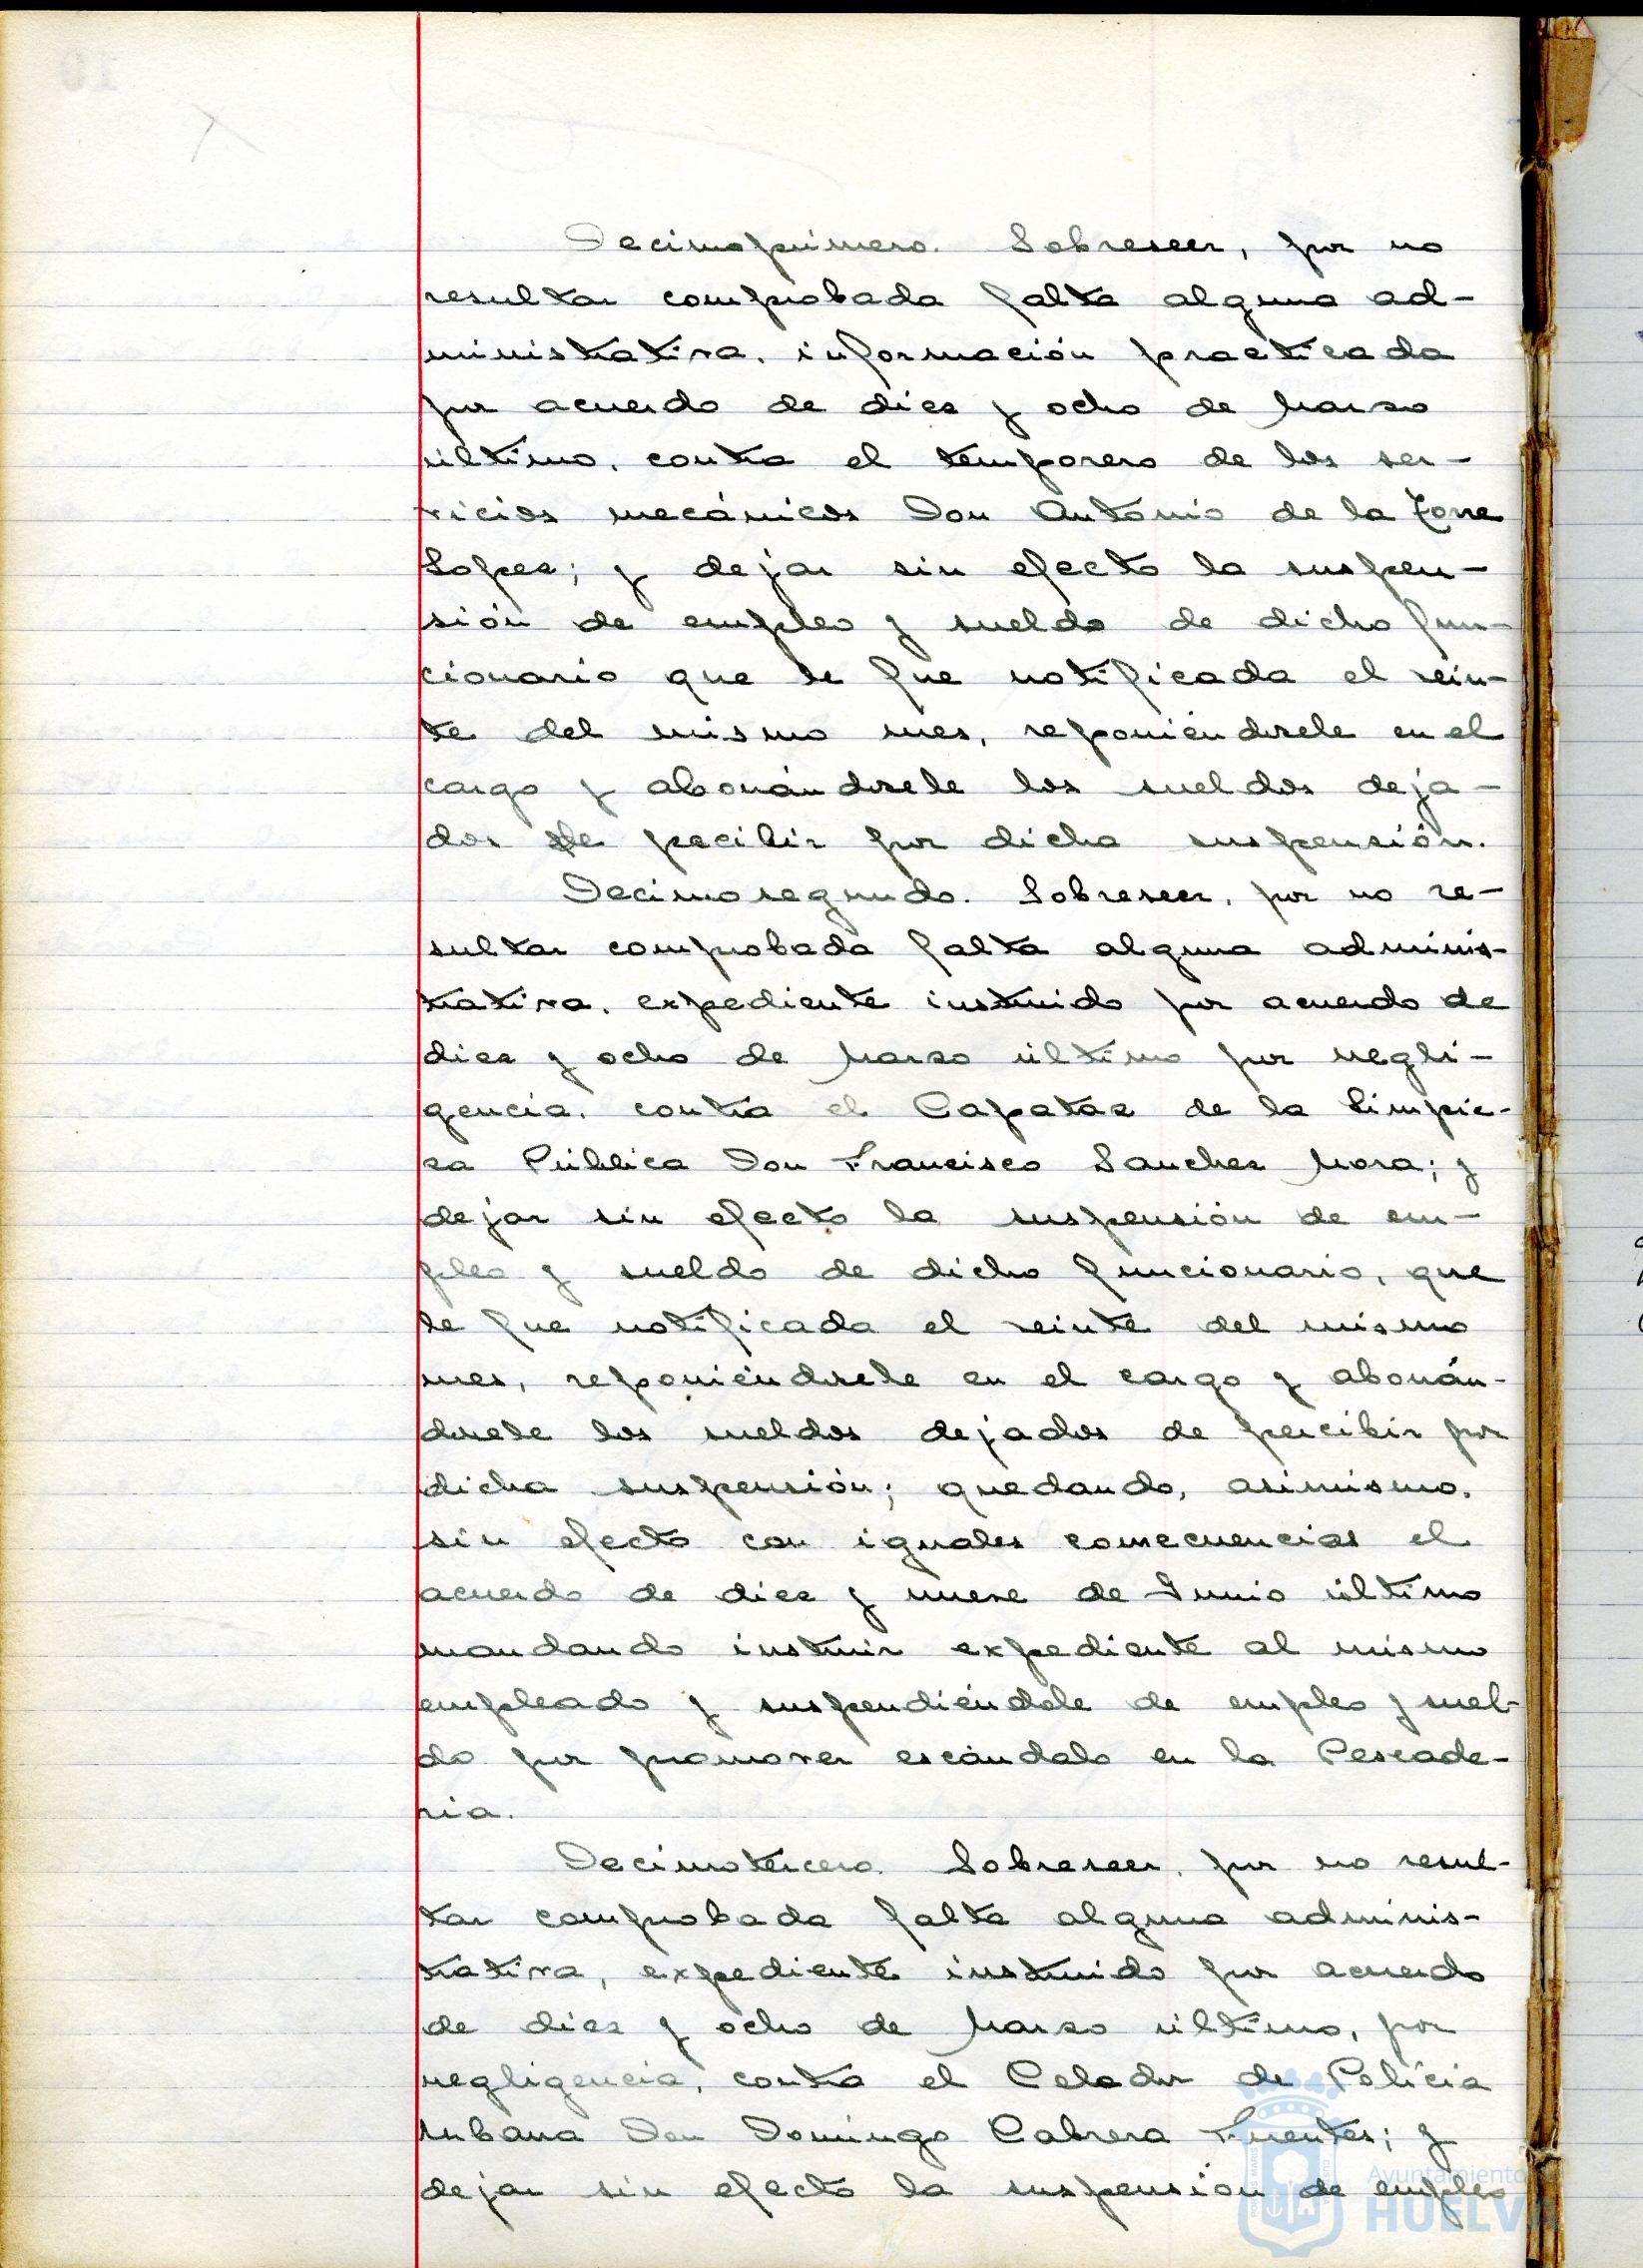 Decimoprimero. Sobreseer, por no
resultar comprobada falta alguna ad-
ministrativa, información practicada
por acuerdo de diez y ocho de Marzo
último, contra el temporero de los ser-
vicios mecánicos Don Antonio de la Torre
Lopez; y dejar sin efecto la suspen-
sión de empleo y sueldo de dicho fun-
cionario que le fue notificada el vein-
te del mismo mes, reponiéndosele en el
cargo y abonándosele los sueldos deja-
dos de pecibir por dicha suspensión.
Decimosegundo. Sobreseer, por no re-
sultar comprobada falta alguna adminis-
trativa, expediente instruido por acuerdo de
diez y ocho de Marzo último por negli-
gencia, contra el Capataz de la Limpie-
za Pública Don Francisco Sanchez Mora; y
dejar sin efecto la suspensión de em-
pleo y sueldo de dicho funcionario, que
le fue notificada el veinte del mismo
mes, reponiéndosele en el cargo y abonán-
dosele los sueldos dejados de percibir por
dicha suspensión; quedando, asimismo,
sin efecto con iguales consecuencias el
acuerdo de diez y nueve de Junio último
mandando instruir expediente al mismo
empleado y suspendiéndole de empleo y suel-
do por promover escándalo en la Pescade-
ria.
Decimotercero. Sobreseer, por no resul-
tar comprobada falta alguna adminis-
trativa, expediente instruido por acuerdo
de diez y ocho de Marzo último, por
negligencia, contra el Celador de Policia
urbana Don Domingo Cabrera Fuentes; y
dejar sin efecto la suspensión de empleo
Ayuntamiento
HUELVA